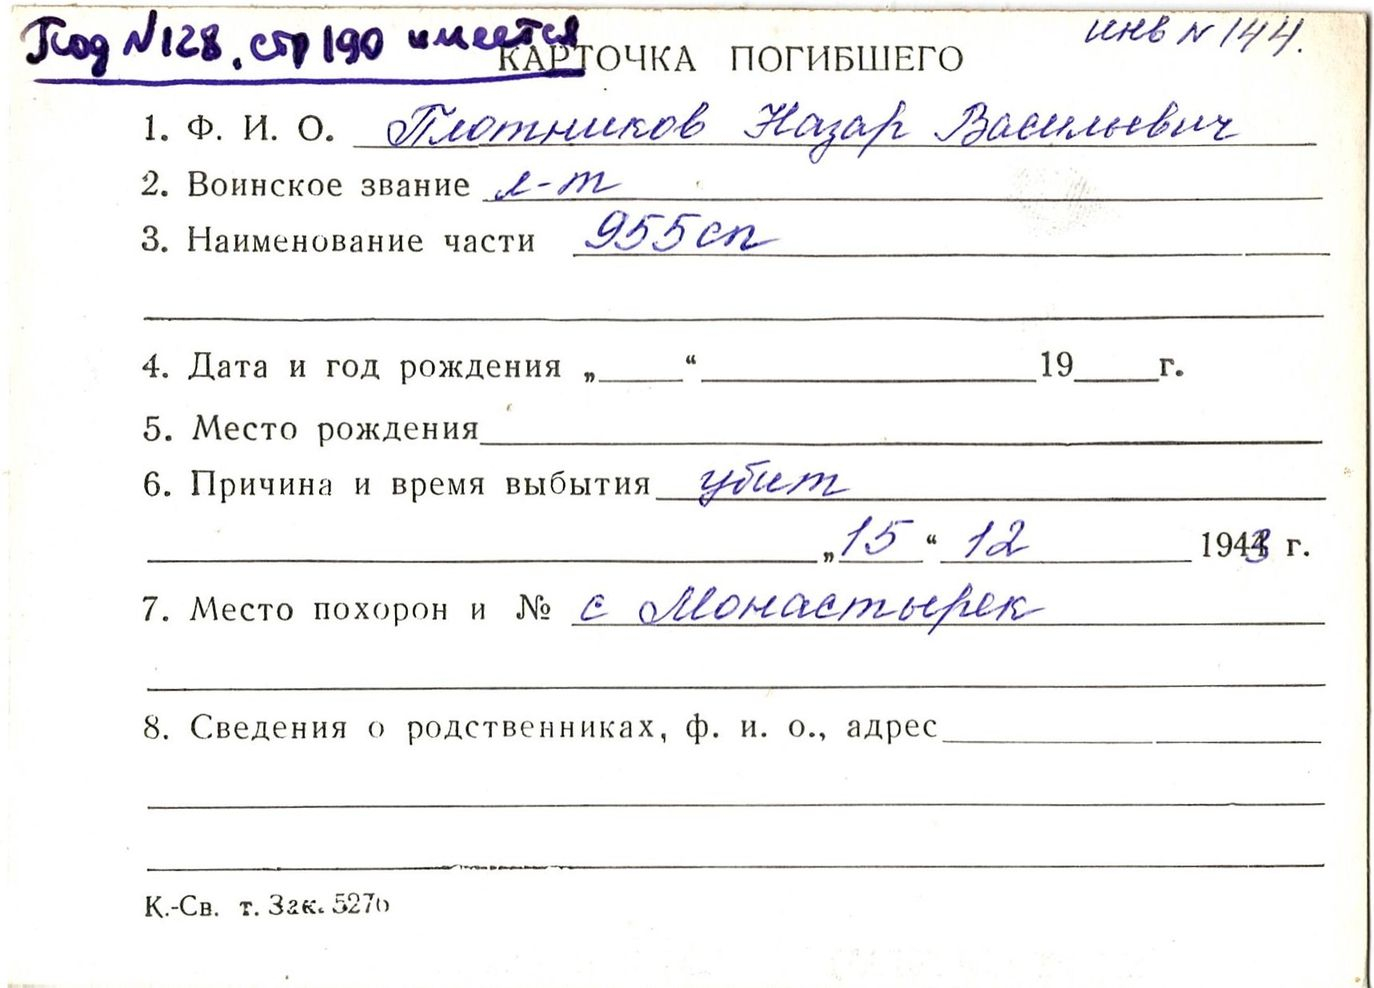 Код №128, стр 190 имеется
инв № 144.
КАРТОЧКА ПОГИБШЕГО
1. Ф. И. О. Плотников Назар Васильевич
2. Воинское звание л-т
3. Наименование части 955 сп
4. Дата и год рождения „____“ ____ 19____г.
5. Место рождения
6. Причина и время выбытия убит
„15“ 12 1943 г.
7. Место похорон и № с Монастырек
8. Сведения о родственниках, ф. и. о., адрес
К.-Св. т. Зак. 5276